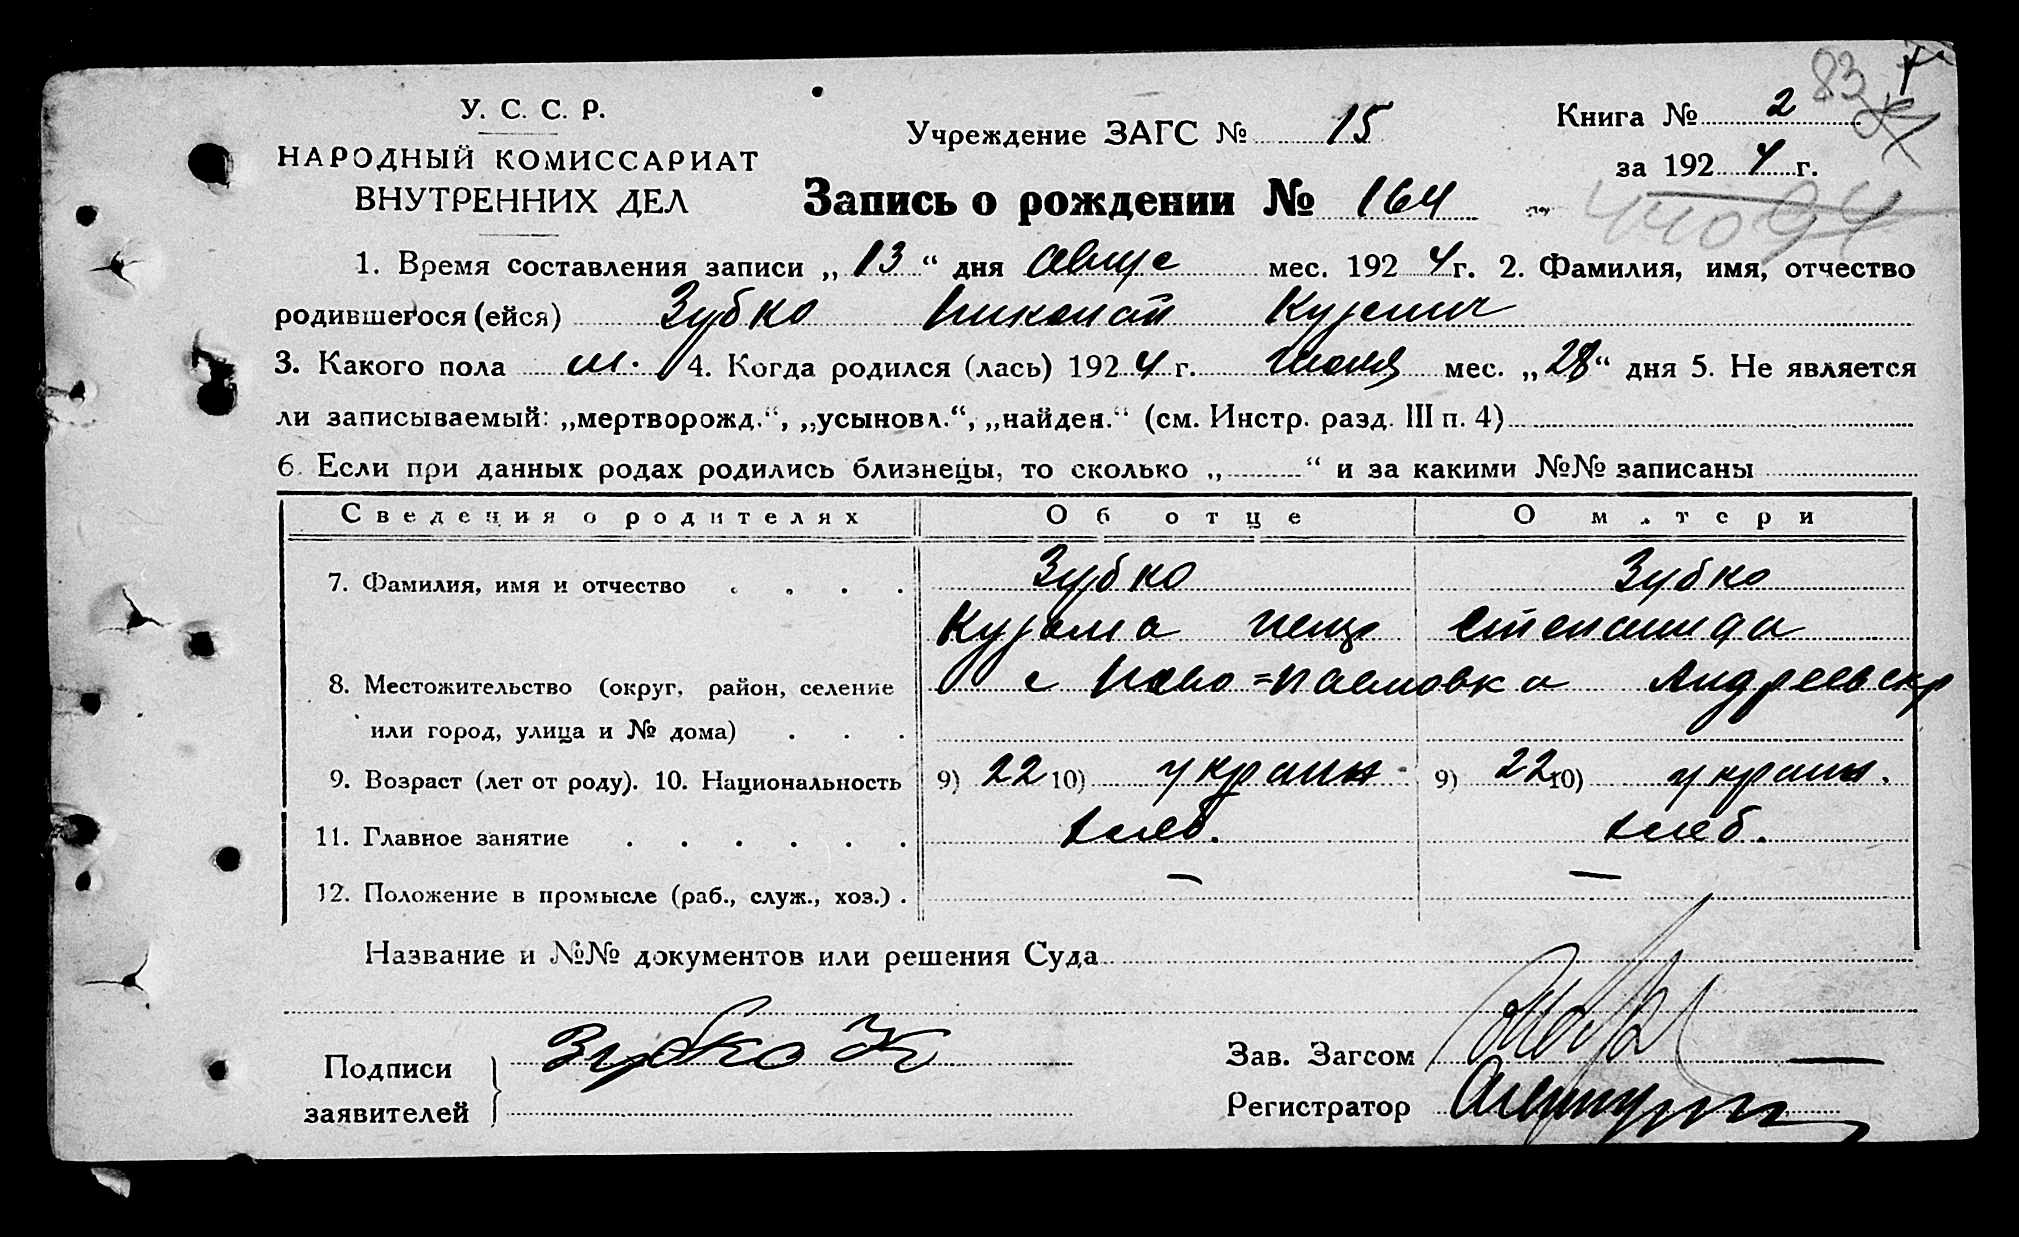 83
У. С. С. Р.
НАРОДНЫЙ КОМИССАРИАТ
ВНУТРЕННИХ ДЕЛ
Учреждение ЗАГС № 15
Книга № 2
за 1924 г.
Запись о рождении № 164
44094
1. Время составления записи „13“ дня Авгус мес. 1924 г. 2. Фамилия, имя, отчество
родившегося (ейся) Зубко Николай Кузьмич
3. Какого пола м. 4. Когда родился (лась) 1924 г. июля мес. „28“ дня 5. Не является
ли записываемый: „мертворожд.“, „усыновл.“, „найден.“ (см. Инстр. разд. III п. 4)
6. Если при данных родах родились близнецы, то сколько „ “ и за какими №№ записаны
Сведения о родителях Об отце О матери
7. Фамилия, имя и отчество Зубко Зубко
Кузьма Степанида
8. Местожительство (округ, район, селение с Ново=Павловка Андреевскр
или город, улица и № дома)
9. Возраст (лет от роду). 10. Национальность 9) 22 10) украин 9) 22 10) украин.
11. Главное занятие хлеб. хлеб.
12. Положение в промысле (раб., служ., хоз.) — —
Название и №№ документов или решения Суда
Подписи
заявителей
Зубко К
Зав. Загсом
Регистратор